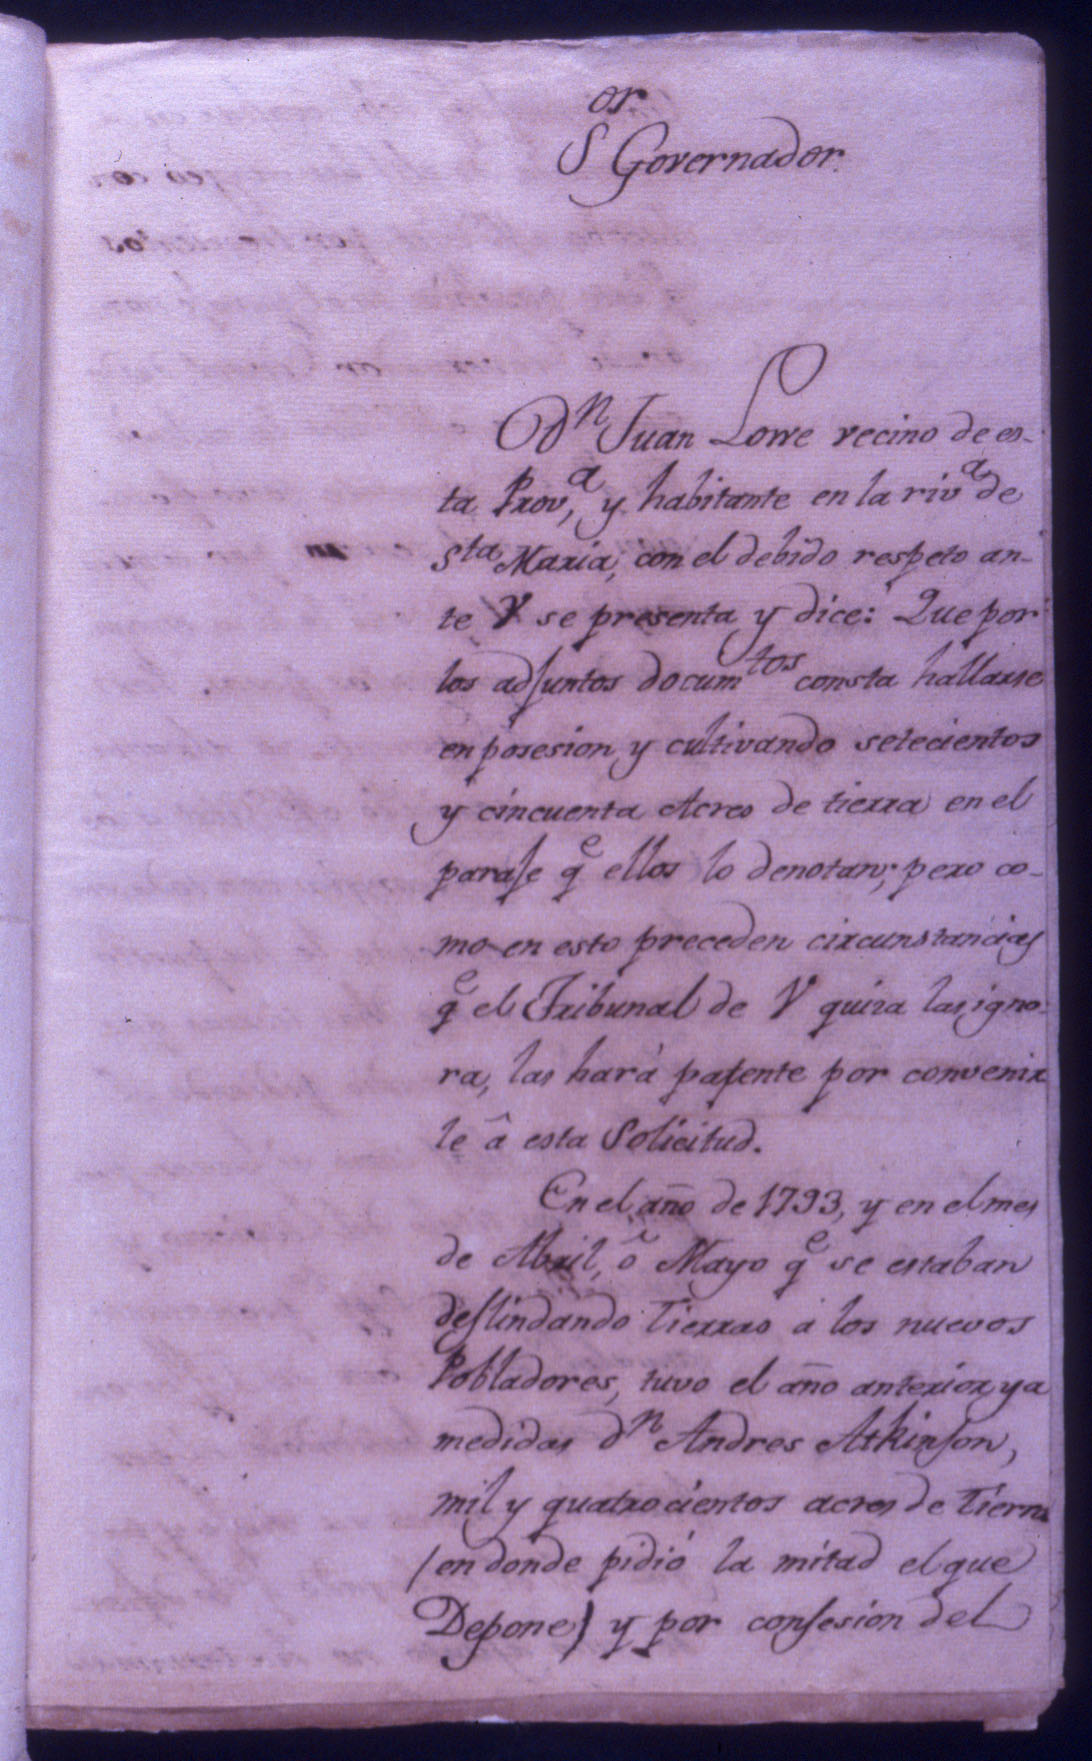 Sor Governador.
Dn Juan Lowe vecino de es-
ta Prova, y habitante en la riva de
Sta Maria, con el debido respeto an-
te V se presenta y dice: Que por
los adjuntos documtos consta hallarse
en posesion y cultivando setecientos
y cincuenta Acres de tierra en el
paraje qe ellos lo denotan; pero co-
mo en esto preceden circunstancias
qe el Tribunal de V quiza las igno-
ra, las hará patente por convenir
le â esta Solicitud.
En el año de 1793, y en el mes
de Abril, ô Mayo qe se estaban
deslindando Tierras a los nuevos
Pobladores, tuvo el año anterior ya
medidas dn Andres Atkinson,
mil y quatrocientos acres de Tierra
(en donde pidió la mitad el que
Depone) y por consesion del